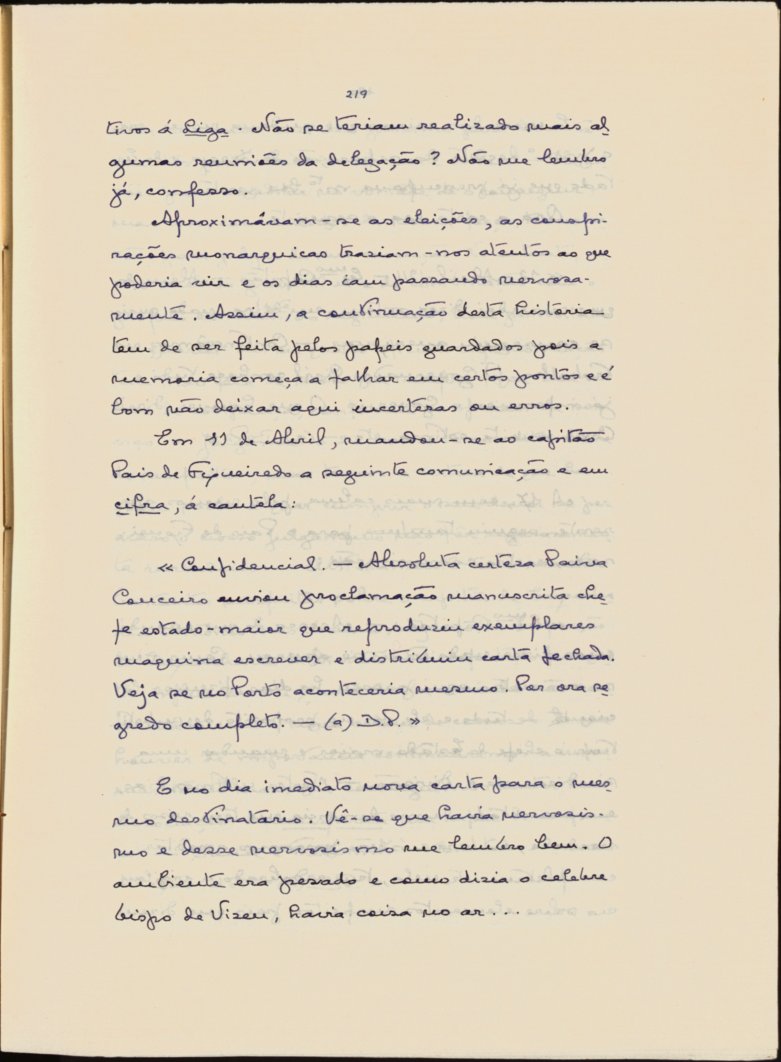 219
tivos á Liga. Não se teriam realizado mais al
gumas reuniões da delegação? Não me lembro
já, confesso.
Aproximávam-se as eleições, as conspi
rações monarquicas traziam-nos atentos ao que
poderia vir e os dias iam passando nervosa-
mente. Assim, a continuação desta historia
tem de ser feita pelos papeis guardados pois a
memoria começa a falhar em certos pontos e é
bom não deixar aqui incertezas ou erros.
Em 11 de Abril, mandou-se ao capitão
Pais de Figueiredo a seguinte comunicação e em
cifra, á cautela:
« Confidencial. — Absoluta certeza Paiva
Couceiro enviou proclamação manuscrita che
fe estado-maior que reproduziu exemplares
maquina escrever e distribuiu carta fechada.
Veja se no Porto aconteceria mesmo. Por ora se
gredo completo. — (a) D.P. »
E no dia imediato nova carta para o mes
mo destinatario. Vê-se que havia nervosis-
mo e desse nervosismo me lembro bem. O
ambiente era pesado e como dizia o celebre
bispo de Vizeu, havia coisa no ar...